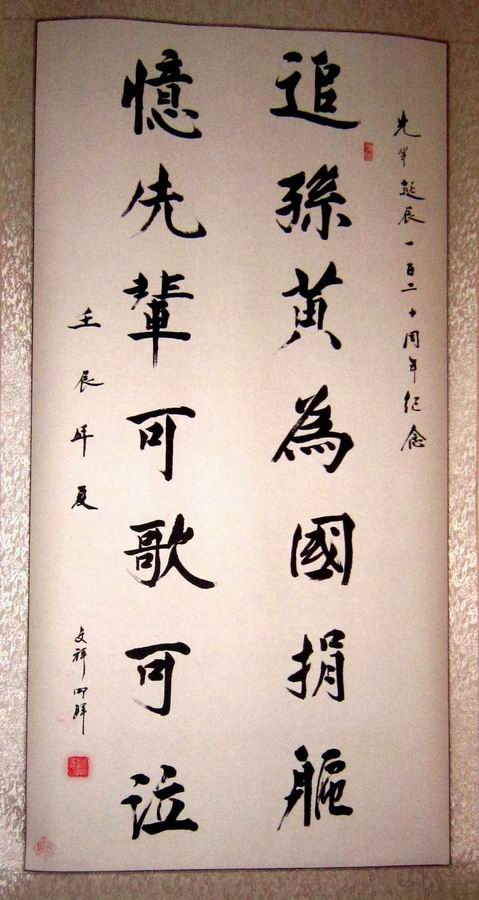 先輩誕辰一百二十周年纪念
追孫黄為國捐軀
憶先輩可歌可泣
壬辰年夏
文祥叩拜